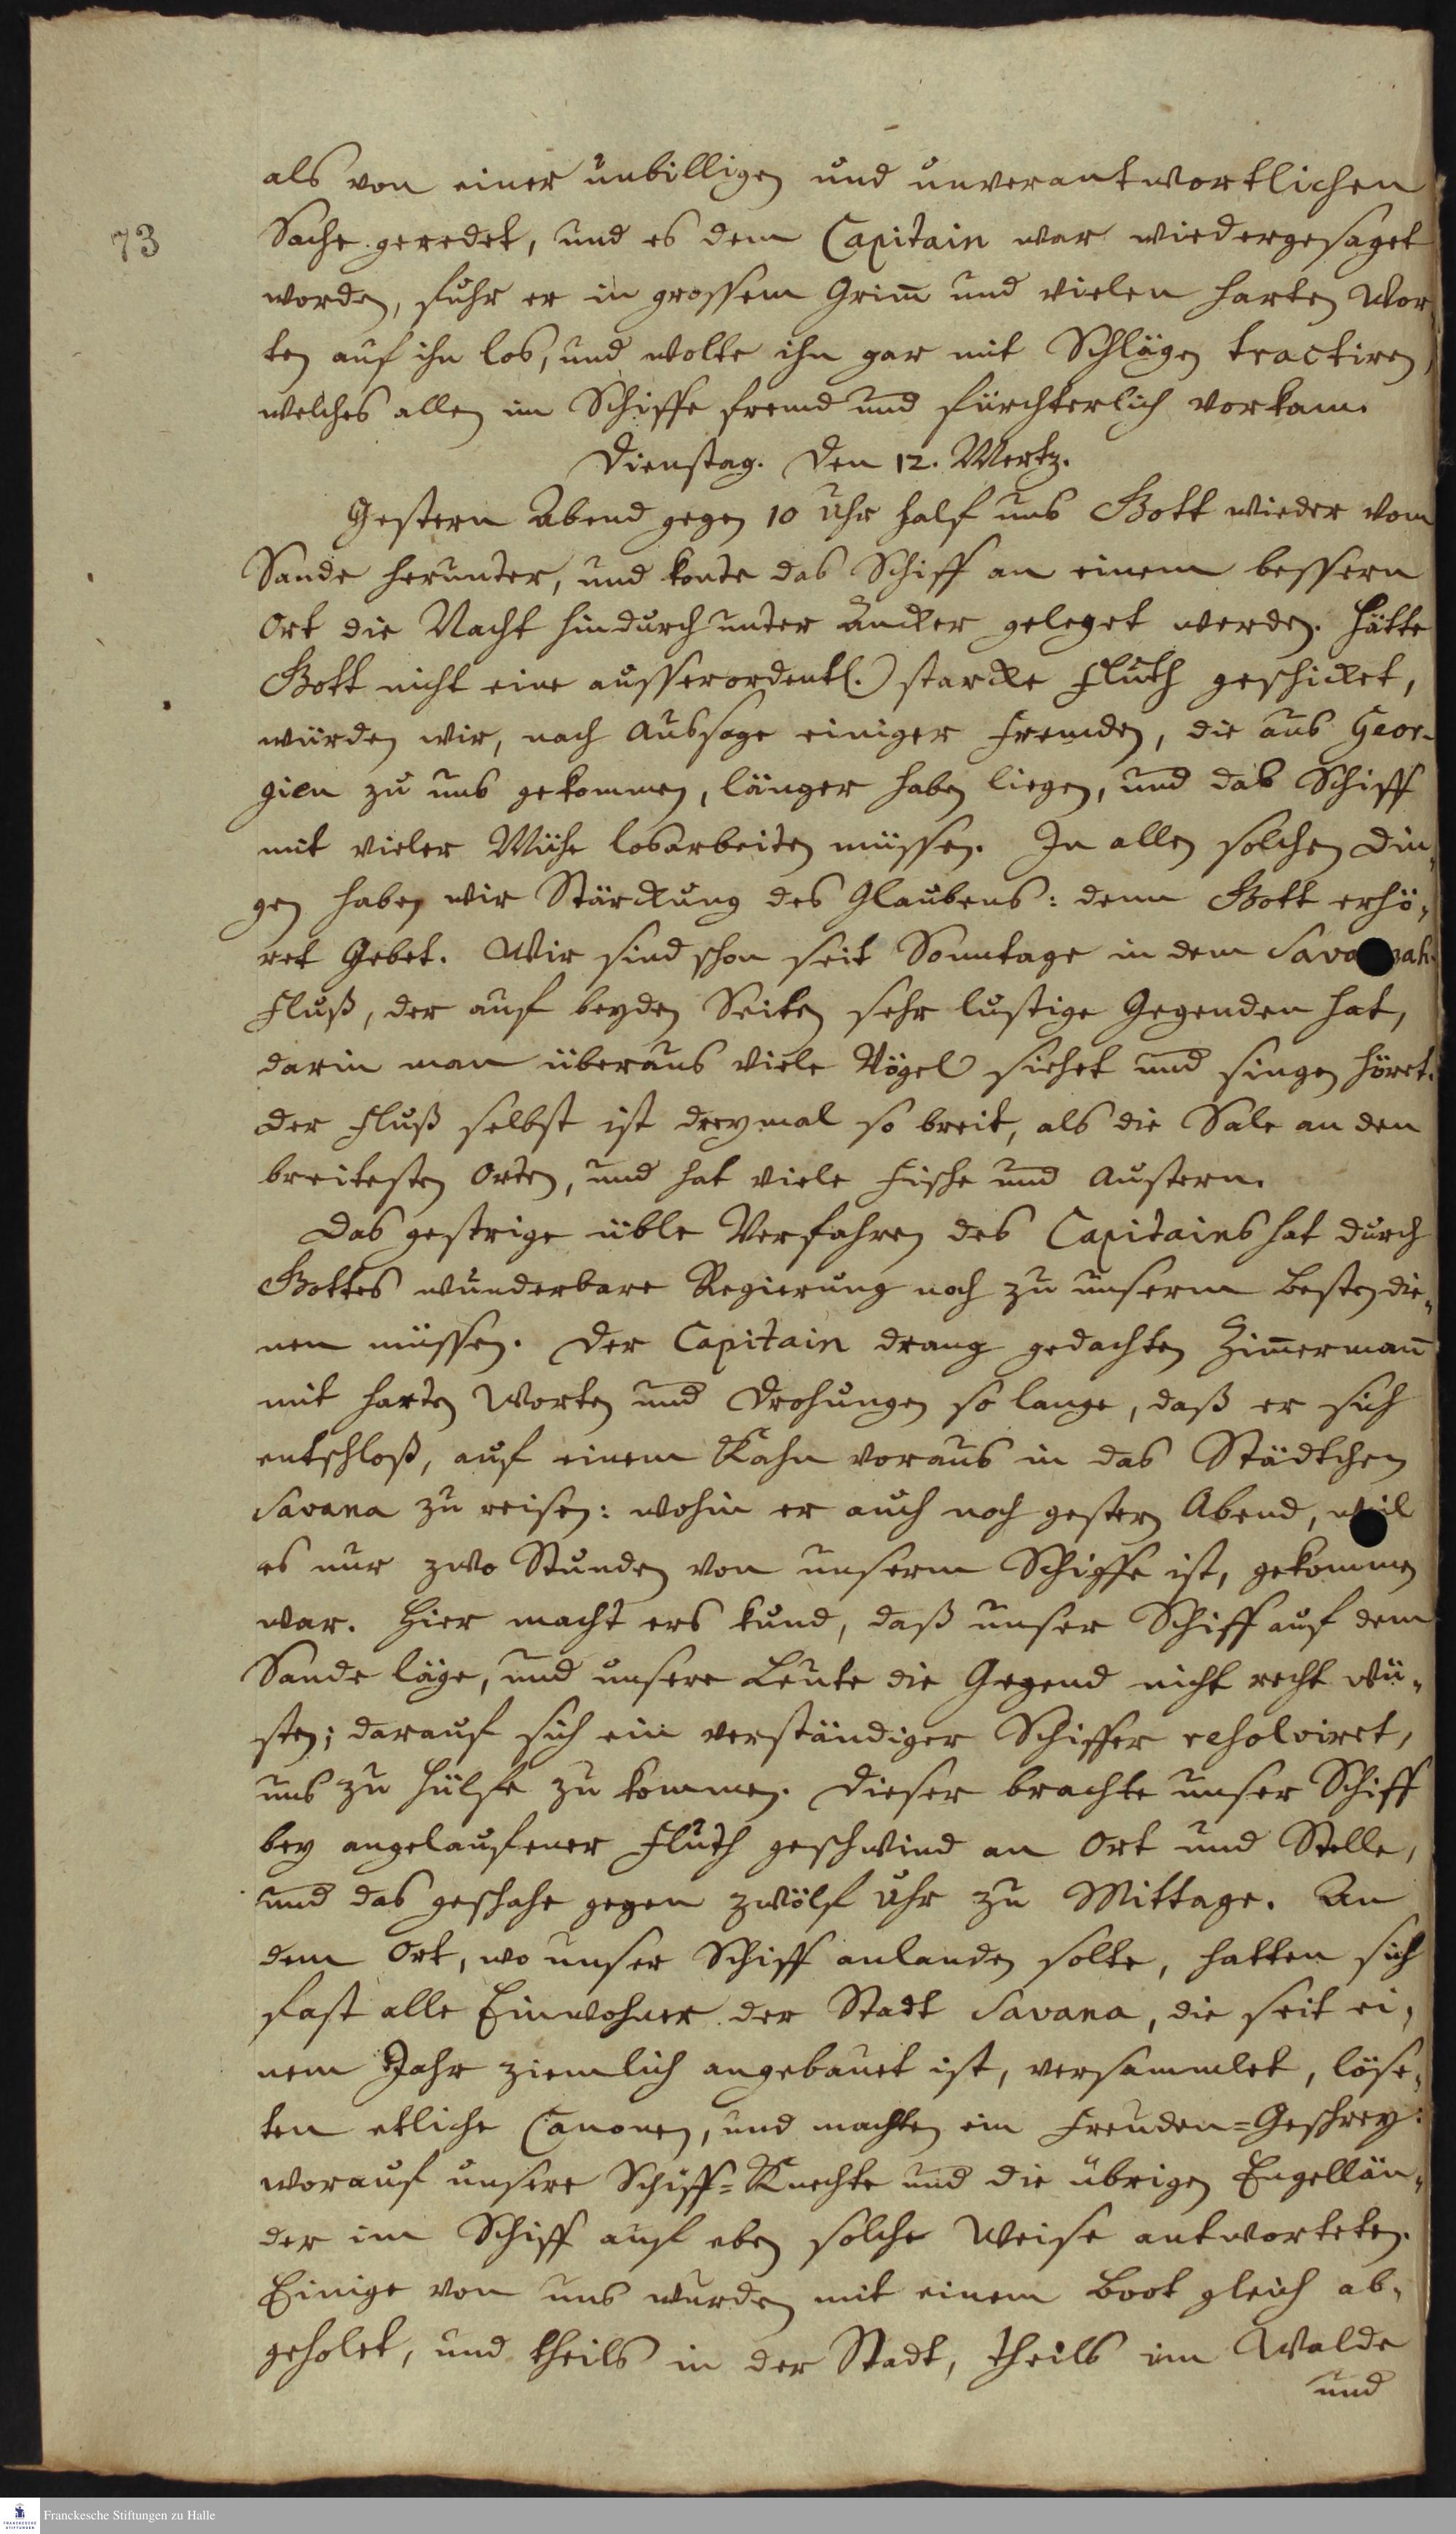 73
als von einer unbilligen und unverantwortlichen
Sache geredet, und es dem Capitain war wiedergesaget
worden, fuhr er in grossem Grim̅ und vielen harten Wor„
ten auf ihn los, und wolte ihn gar mit Schlägen tractiren,
welches allen im Schiffe fremd und fürchterlich vorkam.
Dienstag. Den 12. Mertz.
Gestern Abend gegen 10 Uhr half uns Gott wieder vom
Sande herunter, und konte das Schiff an einem bessern
Ort die Nacht hindurch unter Ancker geleget werden. Hätte
Gott nicht eine ausserordentl. starcke Fluth geschicket,
würden wir, nach Aussage einiger Fremden, die aus Geor-
gien zu uns gekommen, länger haben liegen, und das Schiff
mit vieler Mühe losarbeiten müssen. In allen solchen Din„
gen haben wir Stärckung des Glaubens: denn Gott erhö„
ret Gebet. Wir sind schon seit Sonntage in dem
Fluß, der auf beyden Seiten sehr lustige Gegenden hat,
darin man überaus viele Vögel siehet und singen höret.
Der Fluß selbst ist dreymal so breit, als die Sale an den
breitesten Orten, und hat viele Fische und Austern.
Das gestrige üble Verfahren des Capitains hat durch
Gottes wunderbare Regierung noch zu unserm Besten die„
nen müssen. Der Capitain drang gedachten Zim̅erman̅
mit harten Worten und Drohungen so lange, daß er sich
entschloß, auf einem Kahn voraus in das Städtchen
Savana zu reisen: wohin er auch noch gestern Abend, weil
es nur zwo Stunden von unserm Schiffe ist, gekommen
war. Hier macht ers kund, daß unser Schiff auf dem
Sande läge, und unsere Leute die Gegend nicht recht wü„
sten; darauf sich ein verständiger Schiffer resolviret,
uns zu Hülfe zu kommen. Dieser brachte unser Schiff
bey angelaufener Fluth geschwind an Ort und Stelle,
und das geschahe gegen zwölf Uhr zu Mittage. An
dem Ort, wo unser Schiff anlanden solte, hatten sich
fast alle Einwohner der Stadt Savana, die seit ei„
nem Jahr ziemlich angebauet ist, versammlet, löse„
ten etliche Canonen, und machten ein Freuden=Geschrey:
worauf unsere Schiff=Knechte und die übrigen Engellän„
der im Schiff auf eben solche Weise antworteten.
Einige von uns wurden mit einem Boot gleich ab„
geholet, und theils in der Stadt, theils im Walde
und
Franckesche Stiftungen zu Halle